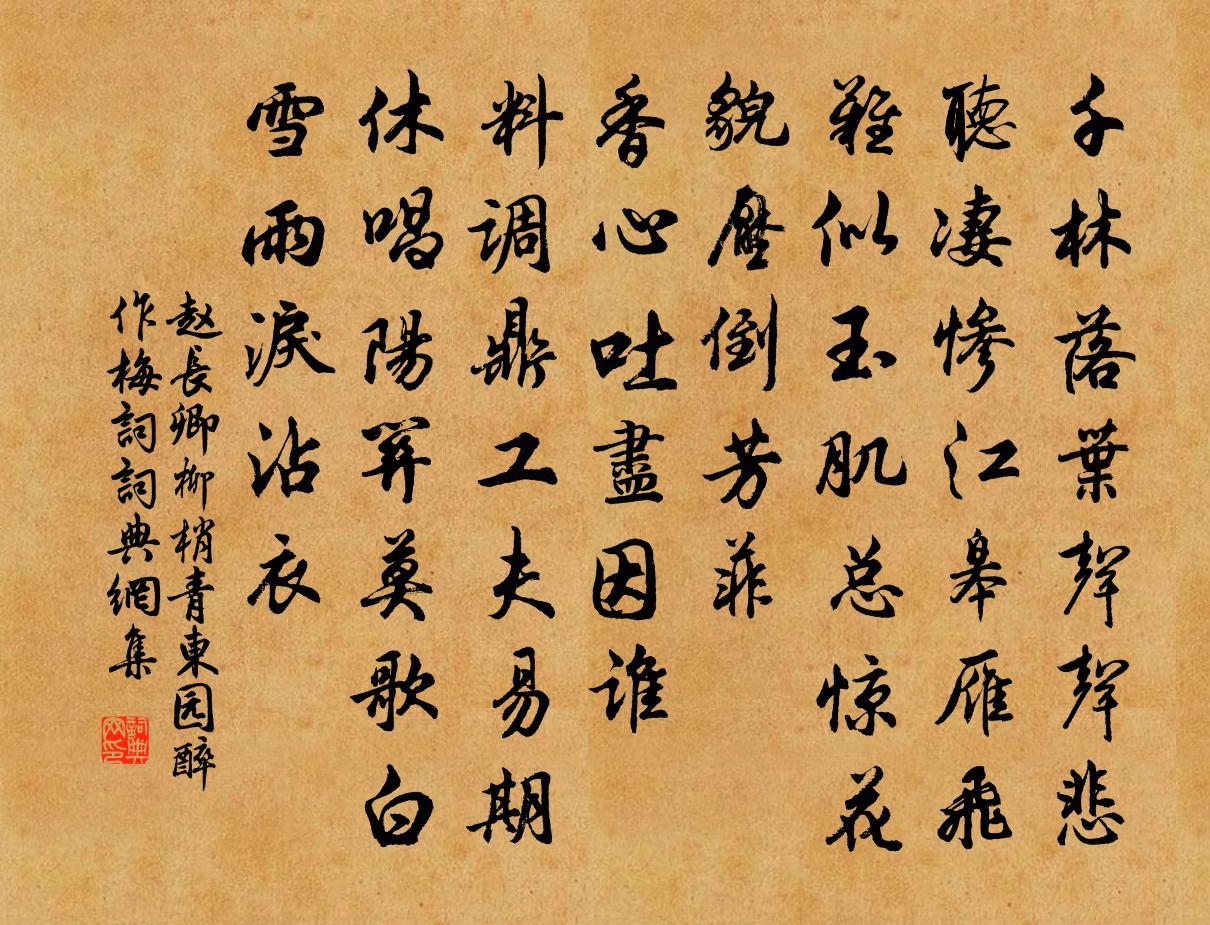 千林落葉聲聲悲
聽凄慘江皋雁飛
難似玉肌总惊花
貌壓倒芳菲
香心吐盡因谁
料调鼎工夫易期
休唱陽關莫歌白
雪雨淚沾衣
赵長卿柳梢青東园醉
作梅詞詞典網集
詞典网印